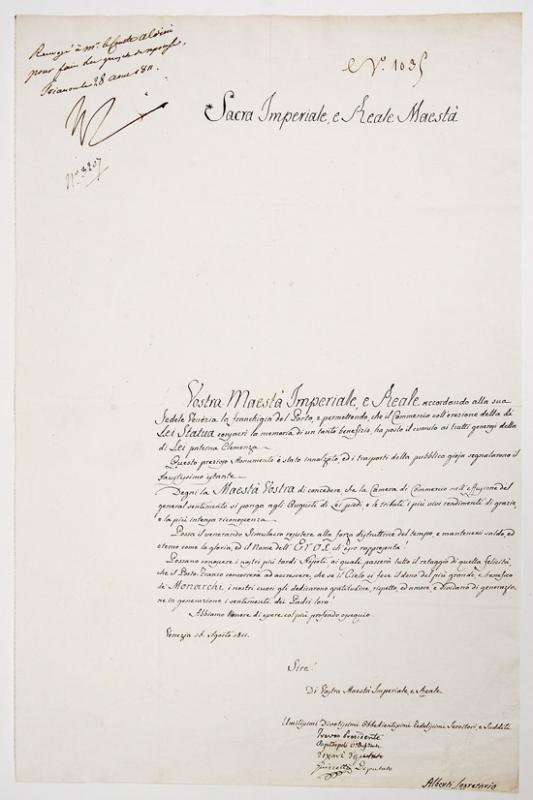 Renvoyé à Mr. le Comte Aldini
pour faire un projet de réponse.
Trianon le 28 aout 1811.
N
No. 3207
No. 1035
Sacra Imperiale, e Reale Maestà
Vostra Maestà Imperiale, e Reale accordando alla sua
fedele Venezia la franchigia del Porto, e permettendo, che il Commercio coll'erezione della di
Lei Statua consacri la memoria di un tanto benefizio, ha posto il cumulo ai tratti generosi della
di Lei paterna Clemenza.
Questo prezioso Monumento è stato innalzato, ed i trasporti della pubblica gioja segnalarono il
faustissimo istante.
Degni la Maestà Vostra di concedere, che la Camera di Commercio nell'effusione del
general sentimento si ponga agli Augusti di Lei piedi, e le tributi i più vivi rendimenti di grazie,
e la più intensa riconoscenza.
Possa il venerando Simulacro resistere alla forza distruttrice del tempo, e mantenersi saldo, ed
eterno come la gloria, ed il Nome dell'Eroe ch'egli rappresenta.
Possano conoscere i nostri più tardi Nipoti, ai quali passerà tutto il retaggio di quella felicità,
che il Porto Franco concorrerà ad accrescere, che se il Cielo ci fece il dono del più grande, e benefico
de Monarchi i nostri cuori gli dedicarono gratitudine, rispetto, ed amore, e diedero di generazio-
ne in generazione i sentimenti dei Padri loro.
Abbiamo l'onore di essere col più profondo ossequio.
Venezia 16. Agosto 1811.
Sire!
Di Vostra Maestà Imperiale, e Reale
Umilissimi Divotissimi Obbedientissimi Fedelissimi Servitori, e Sudditi
Presidente
Deputato
Alberti Segretario